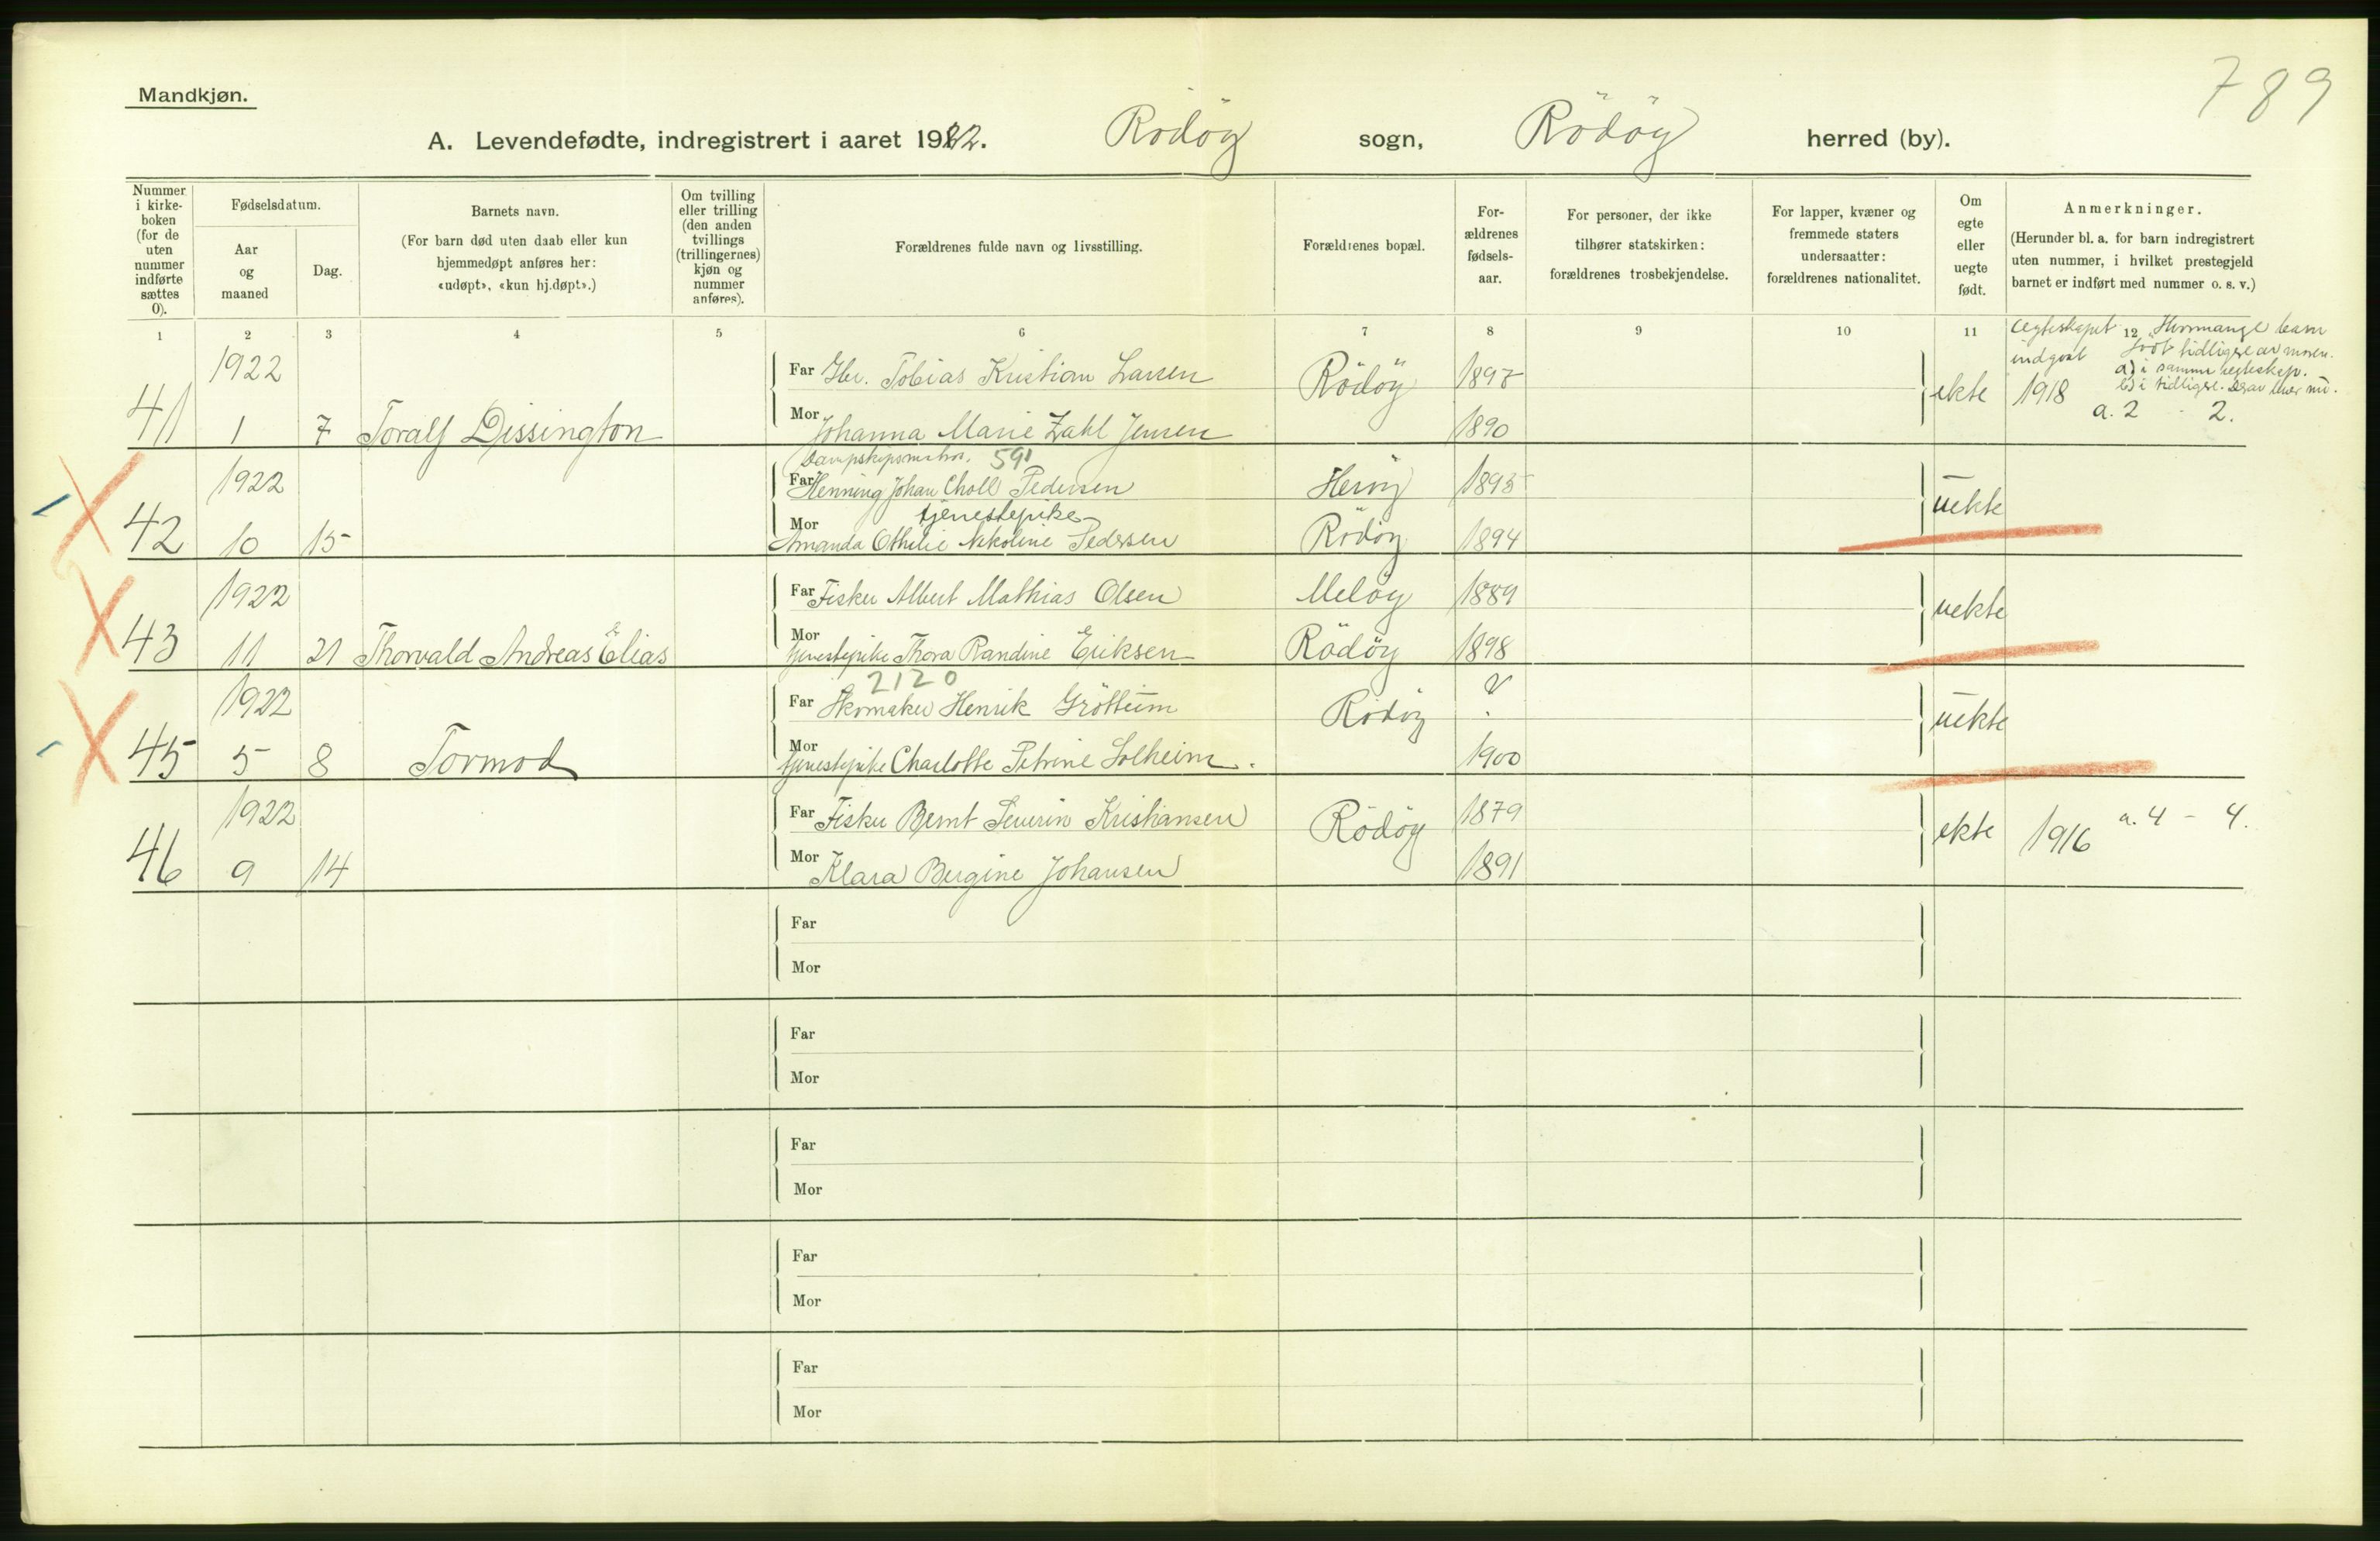 789
Mandkjøn.
A. Levendefødte, indregistrert i aaret 1922. Rödöy sogn, Rödöy herred (by).
Nummer i kirke-boken (for de uten nummer indførte sættes 0).
Fødselsdatum.
Aar og maaned
Dag.
Barnets navn.
(For barn død uten daab eller kun hjemmedøpt anføres her: «udøpt», «kun hj.døpt».)
Om tvilling eller trilling (den anden tvillings (trillingernes) kjøn og nummer anføres).
Forældrenes fulde navn og livsstilling.
Forældrenes bopæl.
For-ældrenes fødsels-aar.
For personer, der ikke tilhører statskirken: forældrenes trosbekjendelse.
For lapper, kvæner og fremmede staters undersaatter: forældrenes nationalitet.
Om egte eller uegte født.
Anmerkninger.
(Herunder bl. a. for barn indregistrert uten nummer, i hvilket prestegjeld barnet er indført med nummer o. s. v.)
1 2 3 4 5 6 7 8 9 10 11 12
Egteskapet indgaat
Hvormange barn
född tidligere av moren.
a) i samme egteskap.
b) i tidligere. Derav lever nu.
1922 Far Gbr. Tobias Kristian Larsen Rödöy 1895 ekte 1918 a. 2 - 2.
41 1 7 Toralf Dissington Mor Johanna Marie Zahl Jensen 1890
591
1922 Far Henning Johan Choll Pedersen Heröy 1895 uekte
tjenestepike
42 10 15 Mor Amanda Othilie Nekoline Pedersen Rödöy 1894
1922 Far Fisker Albert Mathias Olsen Melöy 1889 uekte
43 11 21 Thorvald Andreas Elias Mor tjenestepike Thora Randine Eriksen Rödöy 1898
2120
1922 Far Skomaker Henrik Gröttum Rödöy ? uekte
45 5 8 Tormod Mor tjenestepike Charlotte Petrine Solheim. 1900
1922 Far Fisker Bernt Severin Kristiansen Rödöy 1879 ekte 1916 a. 4 - 4.
46 9 14 Mor Klara Bergine Johansen 1891
Far
Mor
Far
Mor
Far
Mor
Far
Mor
Far
Mor